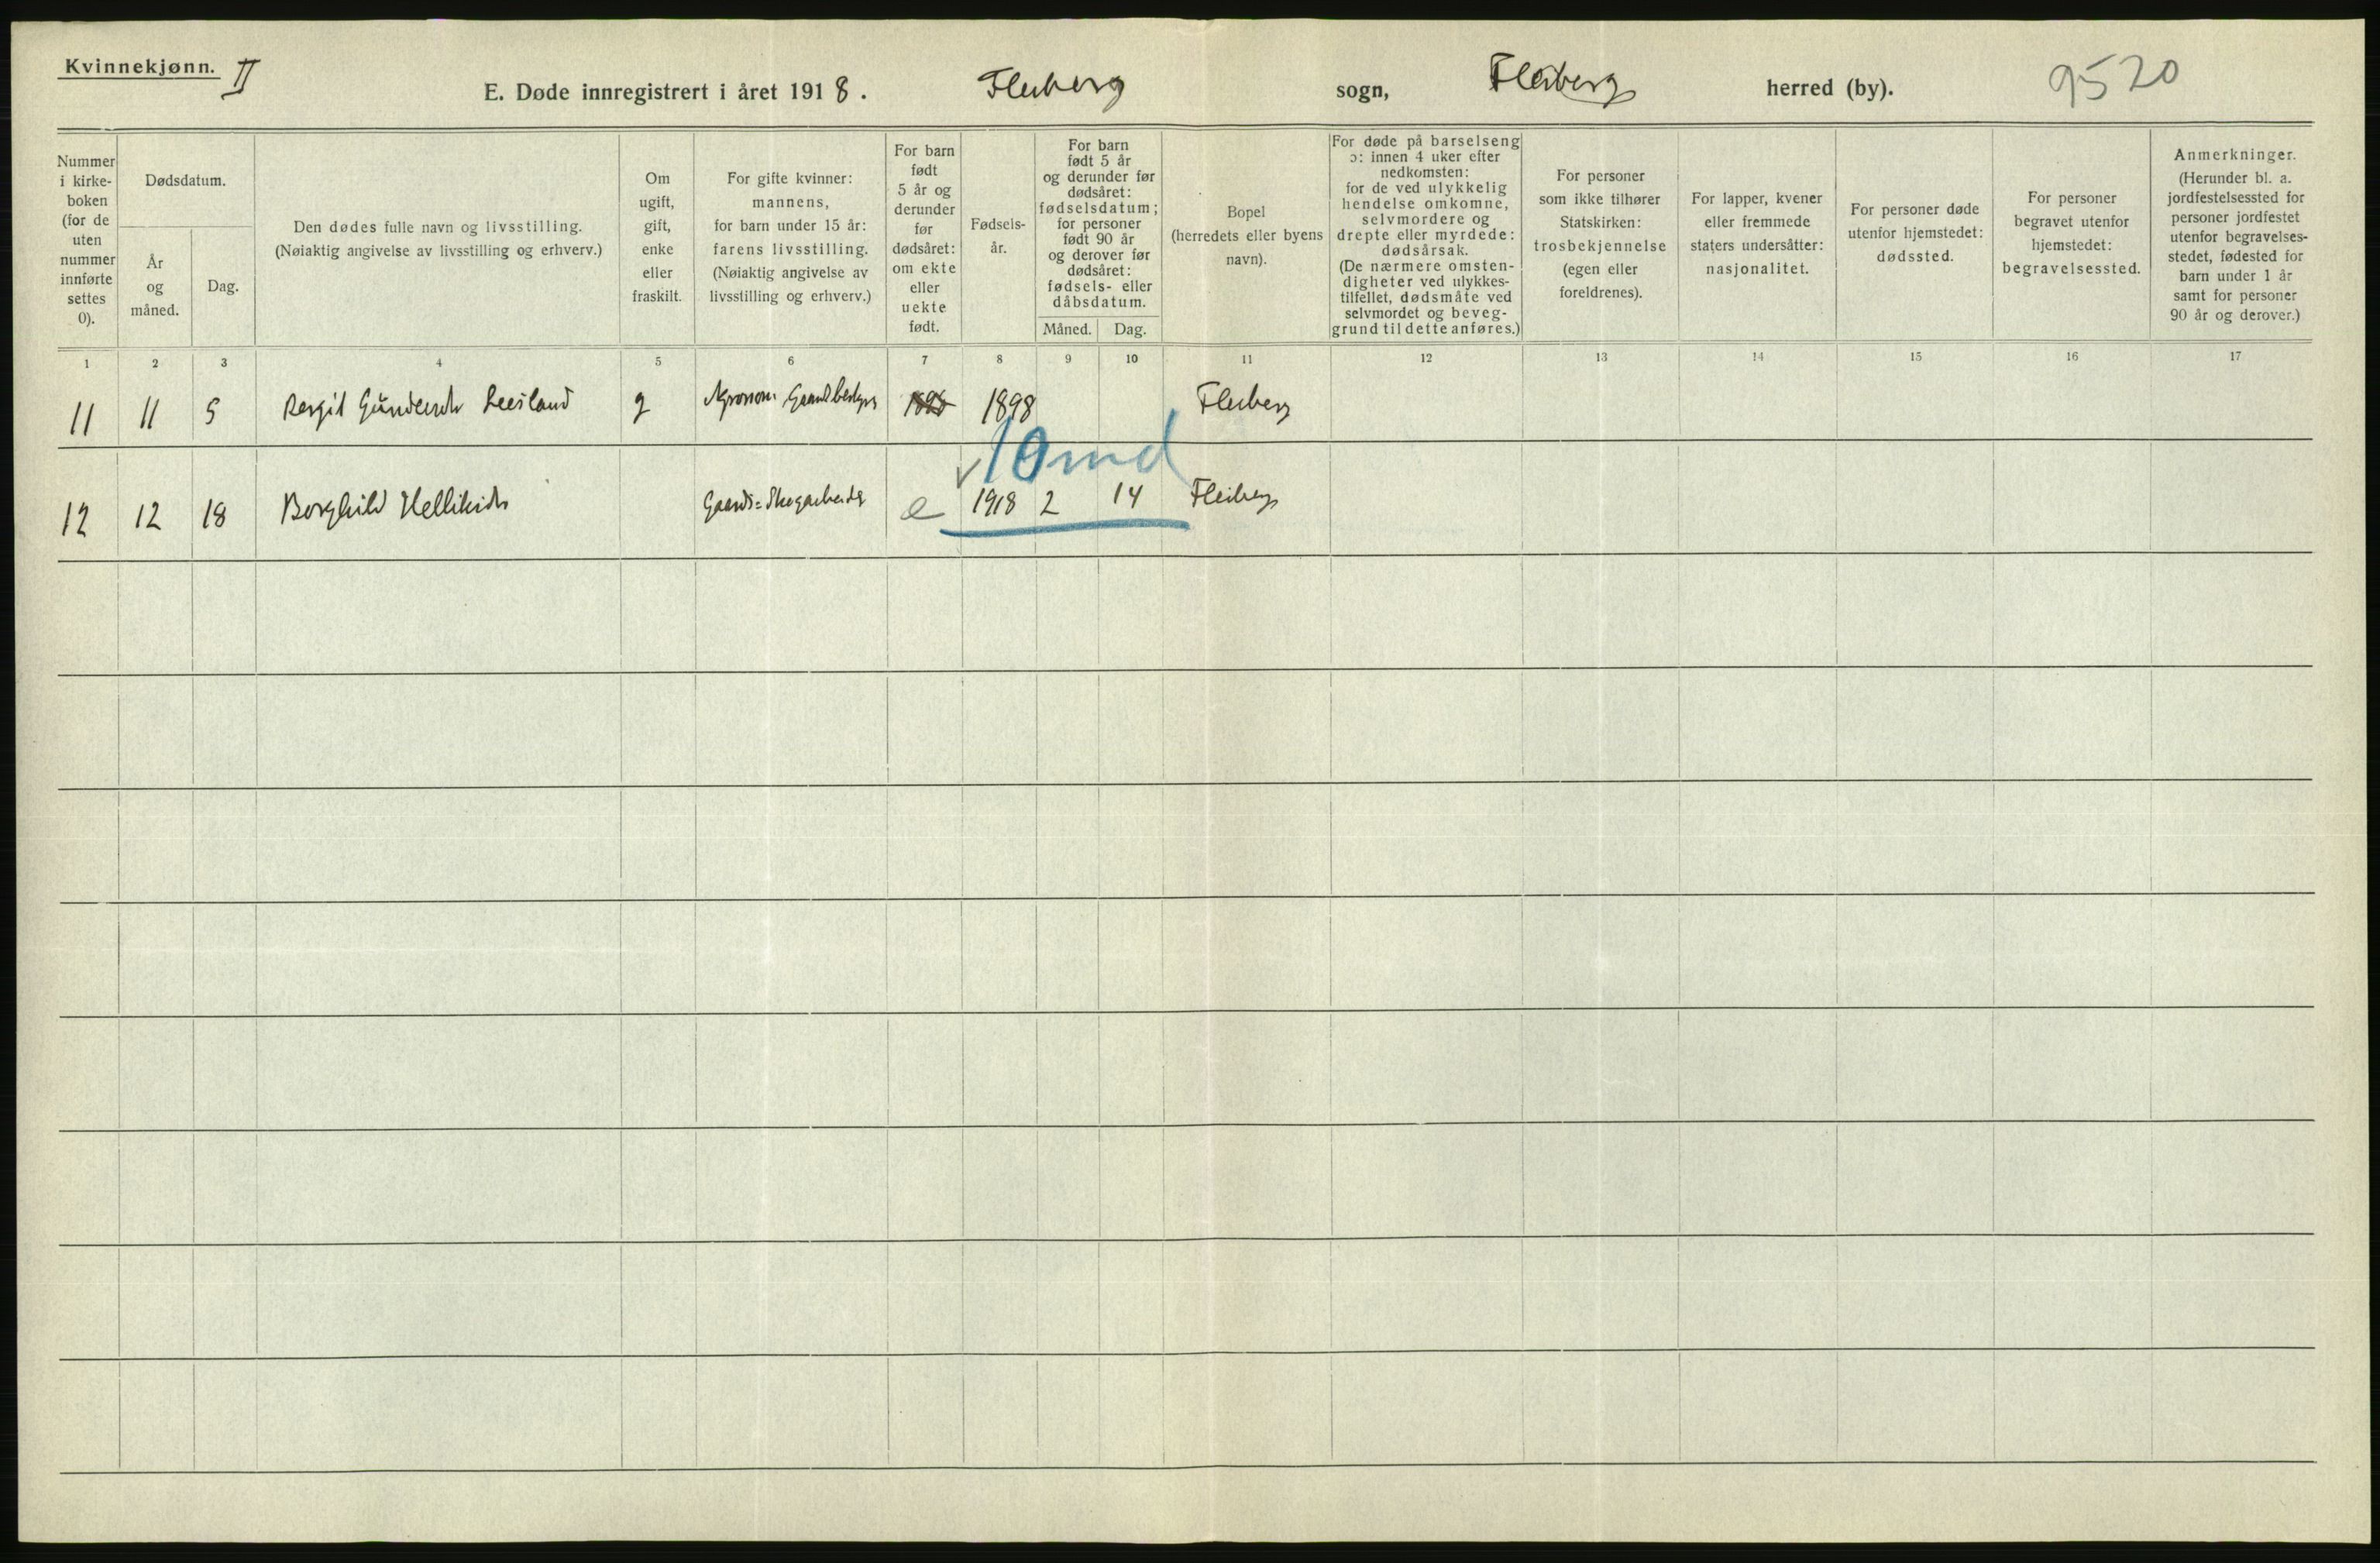 Kvinnekjønn. II
E. Døde innregistrert i året 1918. Flesberg sogn, Flesberg herred (by). 9520
Nummer
i kirke-
boken
(for de
uten
nummer
innførte
settes
0).
Dødsdatum.
År
og
måned.
Dag.
Den dødes fulle navn og livsstilling.
(Nøiaktig angivelse av livsstilling og erhverv.)
Om
ugift,
gift,
enke
eller
fraskilt.
For gifte kvinner:
mannens,
for barn under 15 år:
farens livsstilling.
(Nøiaktig angivelse av
livsstilling og erhverv.)
For barn
født
5 år og
derunder
før
dødsåret:
om ekte
eller
uekte
født.
Fødsels-
år.
For barn
født 5 år
og derunder før
dødsåret:
fødselsdatum;
for personer
født 90 år
og derover før
dødsåret:
fødsels- eller
dåbsdatum.
Måned. Dag.
Bopel
(herredets eller byens
navn).
For døde på barselseng
ɔ: innen 4 uker efter
nedkomsten:
for de ved ulykkelig
hendelse omkomne,
selvmordere og
drepte eller myrdede:
dødsårsak.
(De nærmere omsten-
digheter ved ulykkes-
tilfellet, dødsmåte ved
selvmordet og beveg-
grund til dette anføres.)
For personer
som ikke tilhører
Statskirken:
trosbekjennelse
(egen eller
foreldrenes).
For lapper, kvener
eller fremmede
staters undersåtter:
nasjonalitet.
For personer døde
utenfor hjemstedet:
dødssted.
For personer
begravet utenfor
hjemstedet:
begravelsessted.
Anmerkninger.
(Herunder bl. a.
jordfestelsessted for
personer jordfestet
utenfor begravelses-
stedet, fødested for
barn under 1 år
samt for personer
90 år og derover.)
1 2 3 4 5 6 7 8 9 10 11 12 13 14 15 16 17
11 11 5 g 1898 1898 Flesberg
10 md
12 12 18 Borghild e 1918 2 14 Flesberg